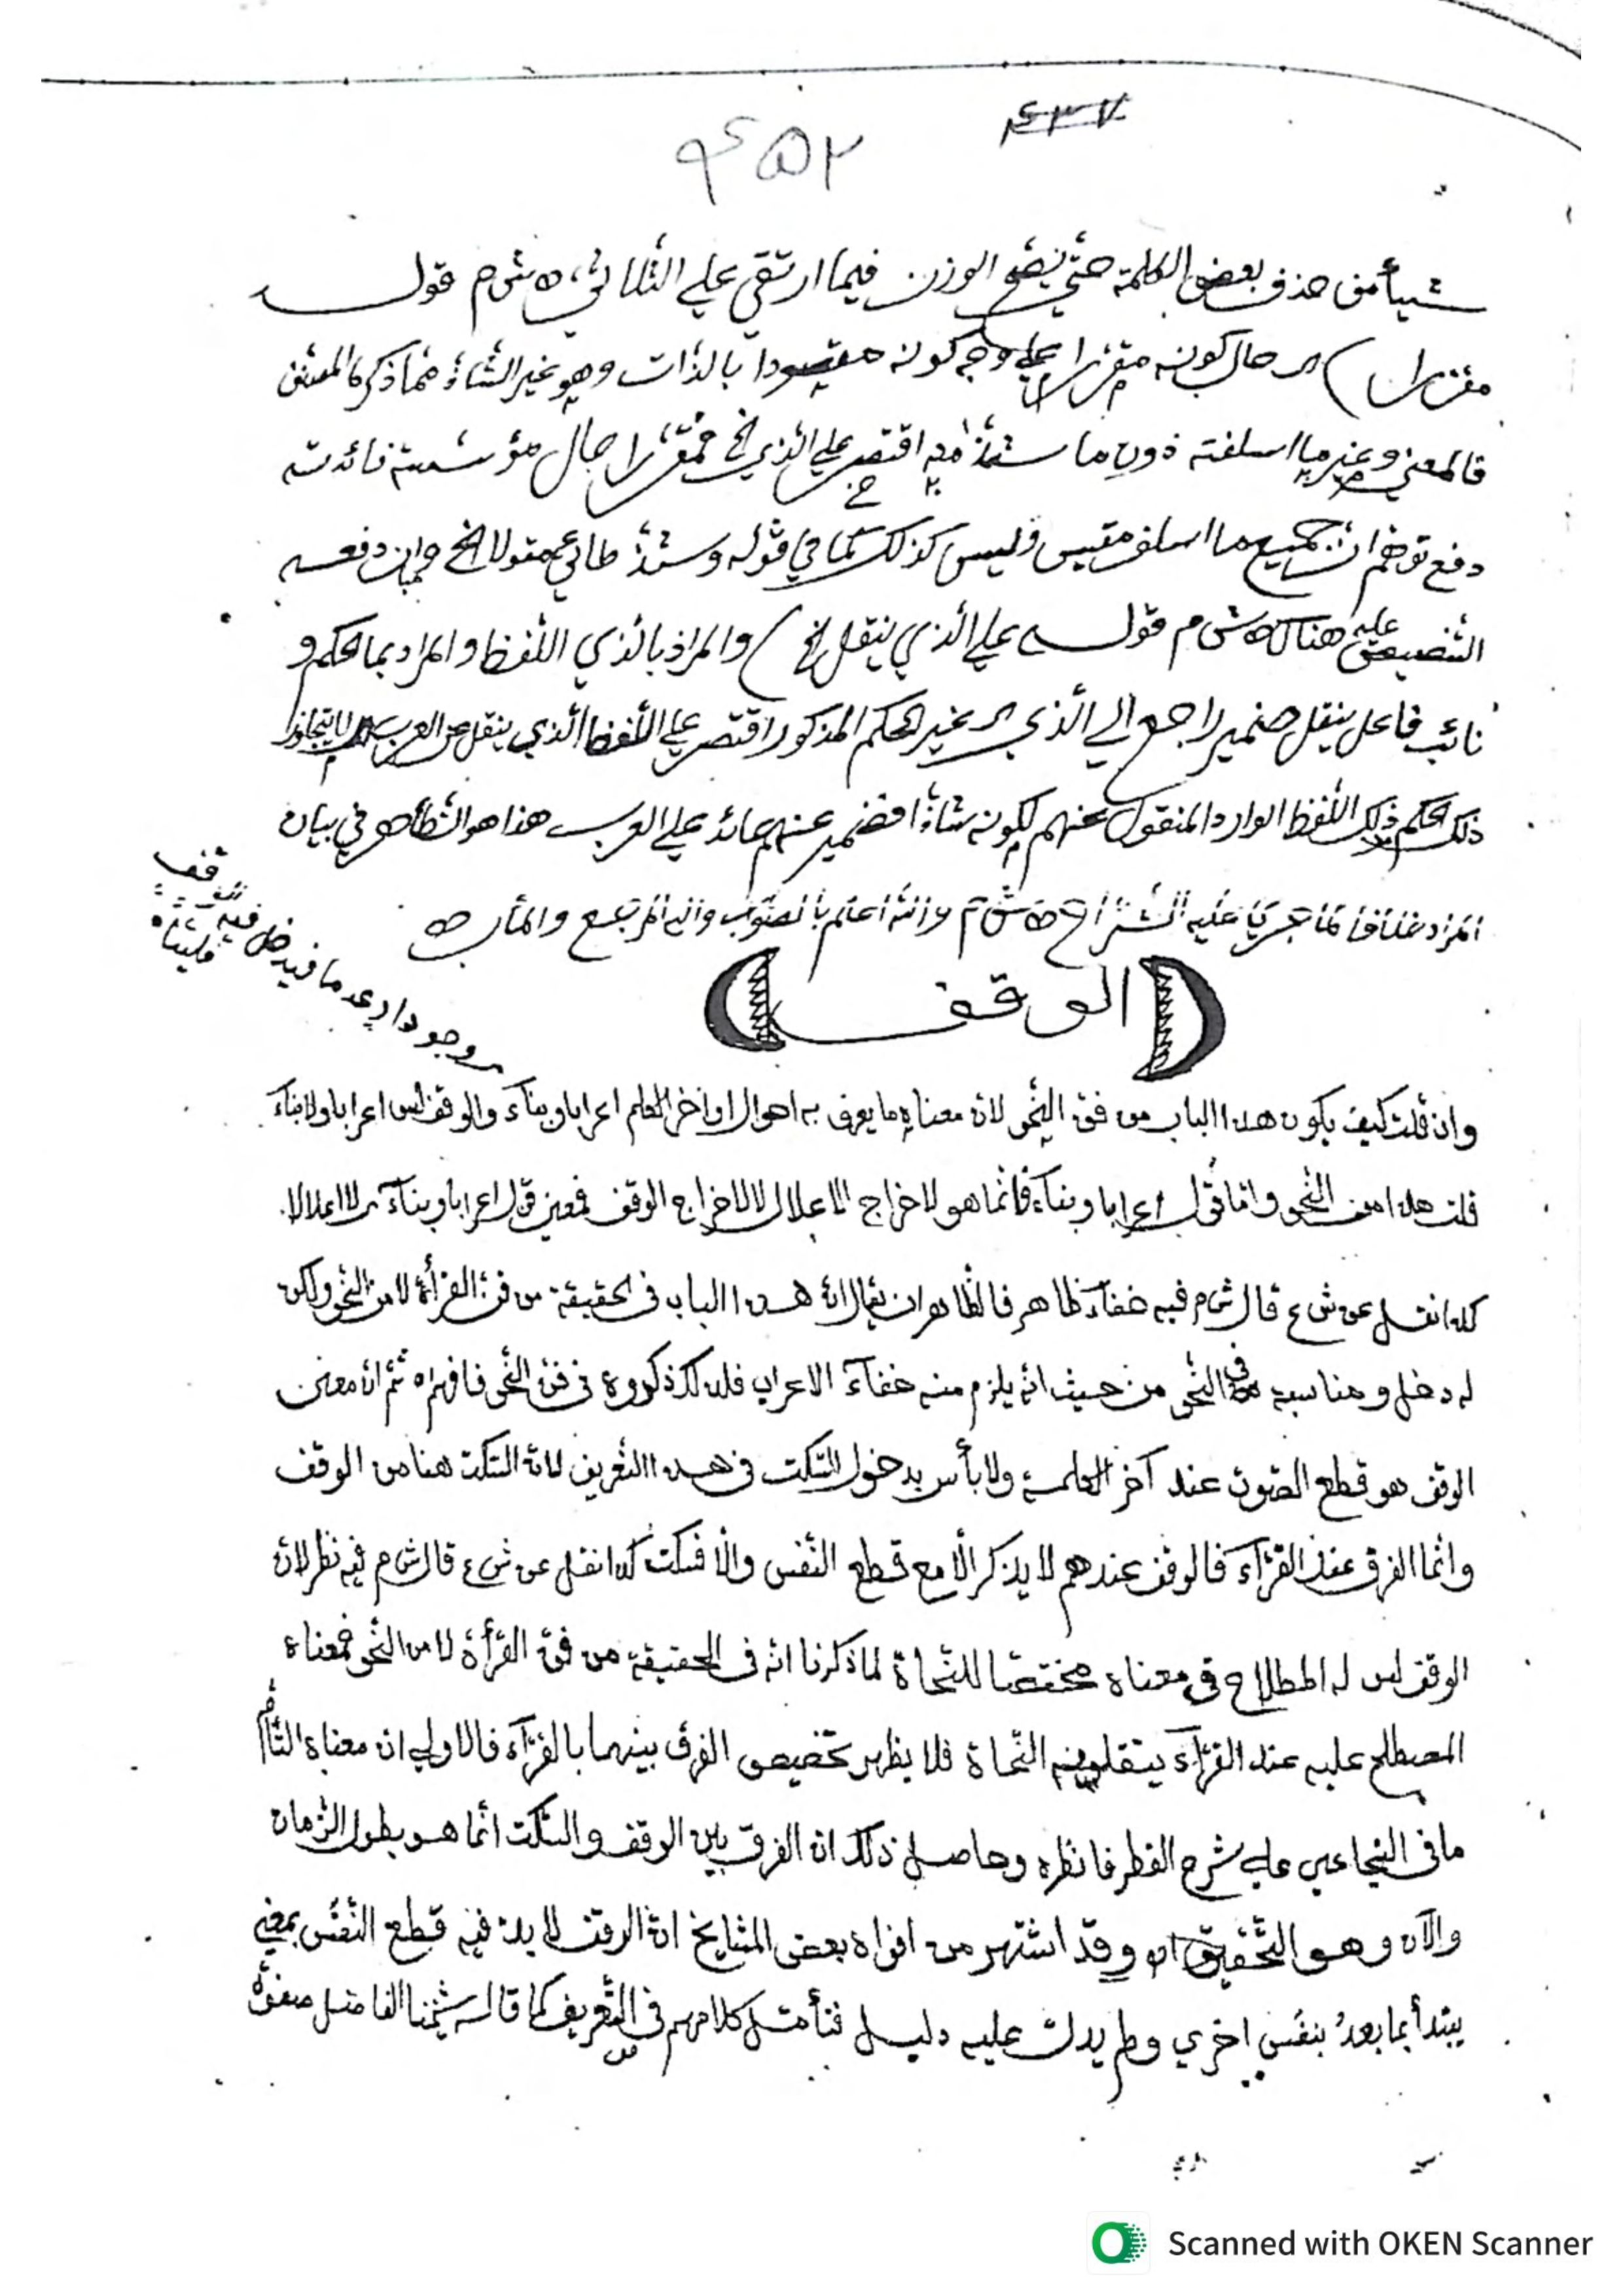 ٤٣٧
٤٥٢
شيأ من حذف بعض الكلمة حتى يصح الوزن فيما ارتقي علي الثلاثي اه ش م قوله
مقتصرا) اي حال كونه مقتصرا علي وجه كونه مقصودا بالذات وهو غير الشاذ مما ذكره المصنف
فالمعني وغير ما اسلفته دون ما شذ منه اقتصر علي الذي الخ فمقتصرا حال مؤسسة فائدته
دفع توهم ان جميع ما اسلف مقيس وليس كذلك كما في قوله وشذ طائي مقولا الخ وان دفعه
التنصيص عليه هنالك اه ش م قوله علي الذي ينقل الخ) والمراد بالذي اللفظ والمراد بما الحكم و
نائب فاعل ينقل ضمير راجع الي الذي اي غير الحكم المذكور اقتصر علي اللفظ الذي ينقل عن العرب اي لا يتجاوز
ذلك الحكم ذلك اللفظ الوارد المنقول عنهم لكونه شاذا فضمير عنهم عائد علي العرب هذا هو الظاهر في بيان
المراد خلافا لما جري عليه الشراح اه ش م والله اعلم بالصواب واليه المرجع والمأب اه
الوقف
وان قلت كيف يكون هذا الباب من فن النحو لان معناه ما يعرف به احوال اواخر الكلم اعرابا وبناء والوقف ليس اعرابا ولا بناء
قلت هذا من النحو وانما قول اعرابا وبناء فانما هو لاخراج الاعلال لا لاخراج الوقف فمعني قول اعرابا وبناء اي لا اعلالا
كذا نقل عن ش ع قال ش م فيه خفاء ظاهر فالظاهر ان يقال ان هذا الباب في الحقيقة من فن القرأة لا من النحو ولكن
له دخل ومناسبة في النحو من حيث انه يلزم منه خفاء الاعراب فلذلك ذكروه في فن النحو فافهم اه ثم ان معني
الوقف هو قطع الصوت عند آخر الكلمة ولا بأس بدخول السكت في هذا التعريف لان السكت هنا من الوقف
وانما الفرق عند القرآء فالوقف عندهم لا يذكر الا مع قطع النفس والا فسكت كذا نقل عن ش ع قال ش م فيه نظر لان
الوقف ليس له اصطلاح في معناه مختصا للنحاة لما ذكرنا انه في الحقيقة من فن القرأة لا من النحو فمعناه
المصطلح عليه عند القرآء ينقلونه النحاة فلا يظهر تخصيص الفرق بينهما بالقرآء فالاولي ان معناه التام
ما في السجاعي علي شرح القطر فانظره وحاصل ذلك ان الفرق بين الوقف والسكت انما هو بطول الزمان
والآن وهو التحقيق اه وقد اشتهر من افواه بعض المشايخ ان الوقف لا بد فيه قطع النفس بمعني
يبتدأ بما بعد بنفس اخري ولم يدل عليه دليل فتأمل كلامهم في التعريف كما قال شيخنا الفاضل
Scanned with OKEN Scanner